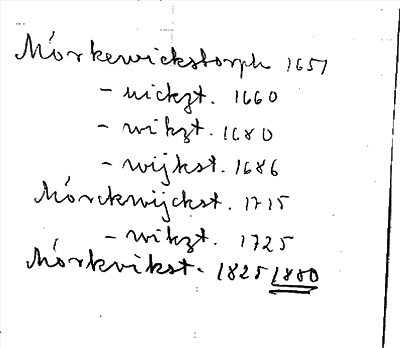 Mórkewickstorph 1651
- wickzt. 1660
- wikzt. 1680
- wijkst. 1686
Mórckwijckst. 1715
- wikzt. 1725
Mórkvikst. 1825 1880